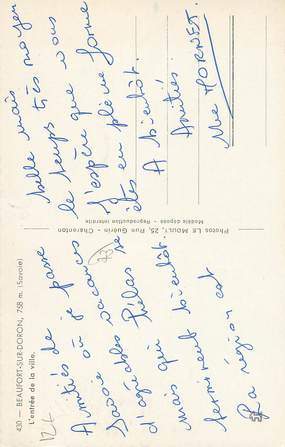 430 — BEAUFORT-SUR-DORON, 758 m. (Savoie)
L'entrée de la ville.
Amitiés de
Savoie où je passe
d'agréables vacances
mais qui
termineront bientôt.
La région est
Photos LE MOULY, 25, Rue Guérin - Charenton
Modèle déposé - Reproduction interdite
belle mais
le temps très moyen
J'espère que vous
êtes en pleine forme
A bientôt.
Amitiés.
Mme HORNET